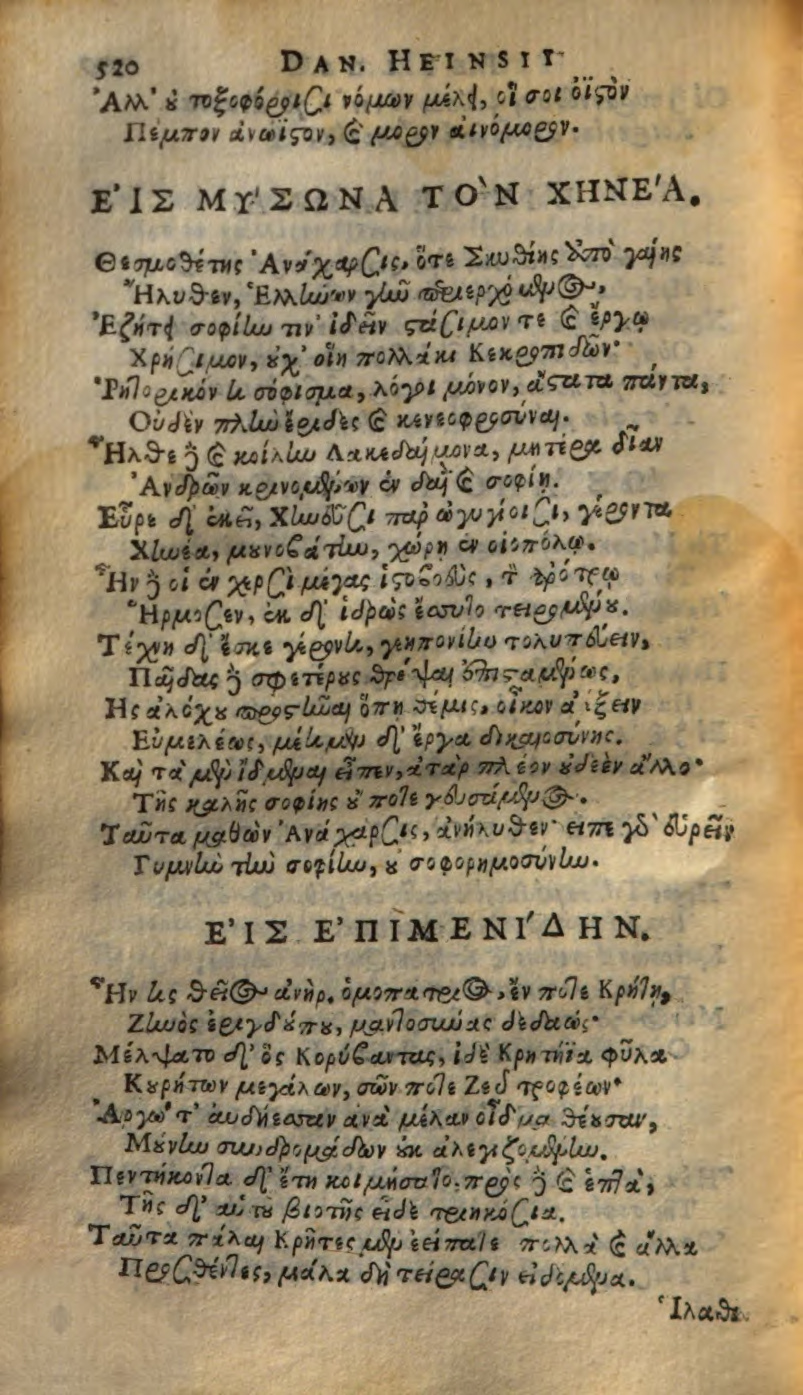 520 DAN. HEINSII
Ἀλλ' οὐ τοξοφόροισι νόμων μέλει, οἵ σοι ὀϊστὸν
Πέμπον ἀνώϊστον, καὶ μόρον αἰνόμορον.
ΕἸΣ ΜΎΣΩΝΑ ΤῸΝ ΧΗΝΕΆ.
Θεσμοθέτης Ἀνάχαρσις, ὅτε Σκυθίης ἀπὸ γαίης
Ἤλυθεν, Ἑλλήνων γῆν περιερχόμενος,
Ἐζήτει σοφίην τιν' ἰδεῖν στάσιμόν τε καὶ ἔργῳ
Χρήσιμον, οὐχ' οἵη πολλάκι Κεκροπιδῶν·
Ῥητορικόν τι σόφισμα, λόγοι μόνον, ἄστατα πάντα,
Οὐδὲν πλὴν ἔριδες καὶ κενεοφροσύναι.
Ἦλθε δὲ καὶ κοίλην Λακεδαίμονα, μητέρα δῖαν
Ἀνδρῶν κρινομένων ἐν δαῒ καὶ σοφίῃ.
Εὗρε δ' ἐκεῖ, Χηνεῦσι παρ' ὠγυγίοισι, γέροντα
Χηνέα, μουνοβάτην, χώρῃ ἐν οἰοπόλῳ.
Ἦν δέ οἱ ἐν χερσὶ μέγας ἱστοβοεὺς, τὸν ἀρότρῳ
Ἥρμοζεν, ἐκ δ' ἱδρὼς ἔσσυτο τειρομένου.
Τέχνη δ' ἔσκε γέροντι, γεηπονίην τολυπεύειν,
Παῖδας δὲ σφετέρους θρέψαι ἐπισταμένως,
Ης ἀλόχου προστῆναι ὅπη θέμις, οἶκον ἀέξειν
Εὐμελέως, μέτα μὲν δ' ἔργα δικαιοσύνης.
Καὶ τὰ μὲν ἴδμεναι εἶπεν, ἀτὰρ πλέον οὐδὲν ἄλλο·
Τῆς καλῆς σοφίης οὔ ποτε γευσάμενος.
Ταῦτα μαθὼν Ἀνάχαρσις, ἀνήλυθεν· εἶπε γὰρ εὑρεῖν
Γυμνὴν τὴν σοφίην, οὐ σοφορημοσύνην.
ΕἸΣ ἘΠΙΜΕΝΊΔΗΝ.
Ἦν τις θεῖος ἀνὴρ, ὁμοπάτριος, ἔν ποτε Κρήτῃ,
Ζηνὸς ἐριγδούπου, μαντοσύνας δεδαώς·
Μέλψατο δ' ὃς Κορύβαντας, ἰδὲ Κρητήϊα φῦλα
Κουρήτων μεγάλων, σῶν ποτε Ζεῦ τροφέων·
Ἀργώ τ' αὐδήεσσαν ἀνὰ μέλαν οἶδμα θέουσαν,
Μούνην συνδρομάδων οὐκ ἀλεγιζομένην.
Πεντήκοντα δ' ἔτη κοιμήσατο. πρὸς δὲ καὶ ἑπτὰ,
Τῆς δ' αὐτοῦ βιοτῆς εἶδε τριηκόσια.
Ταῦτα πάλαι Κρῆτες μὲν ἐείπατε πολλὰ καὶ ἄλλα
Προσθέντες, μάλα δὴ τείρασιν εἰδόμενα.
Ἵλαθι